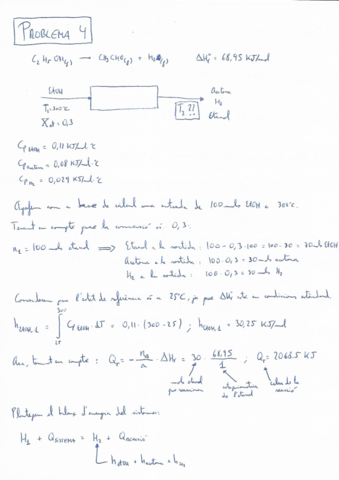 PROBLEMA 4
C₂H₅OH(g) → CH₃CHO(g) + H₂(g) ΔHr° = 68,95 KJ/mol
EtOH
T₁=300ºC
X = 0,3
T₂??
H₂
Etanal
Cp EtOH = 0,11 KJ/mol·ºC
Cp = 0,08 KJ/mol·ºC
Cp H₂ = 0,029 KJ/mol·ºC
Agafem com a base de calcul una entrada de 100 mols EtOH a 300ºC.
Tenint en compte que la conversió és 0,3:
n₁ = 100 mols etanol ⟹ Etanol a la sortida: 100 - 0,3·100 = 100-30 = 70 mols EtOH
a la sortida: 100·0,3 = 30 mols
H₂ a la sortida: 100·0,3 = 30 mols H₂
Considerem que l'estat de referència és a 25ºC, ja que ΔHr està en condicions estàndard
h EtOH,1 = ∫₂₅³⁰⁰ Cp EtOH·dT = 0,11·(300-25); h EtOH,1 = 30,25 KJ/mol
Ara, tenint en compte: Qr = - · ΔHr = 30 · 68,95/1; Qr = 2068,5 KJ
mols etanol que reaccionen
de l'etanol
calor de la reacció
Plantegem el balanç d'energia del sistema:
H₁ + Q = H₂ + Q reacció
h EtOH + h + h H₂